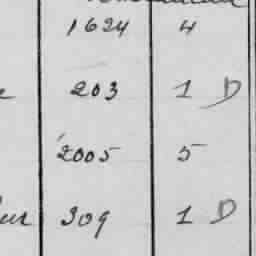 1624 4
203 1 D
2005 5
309 1 D